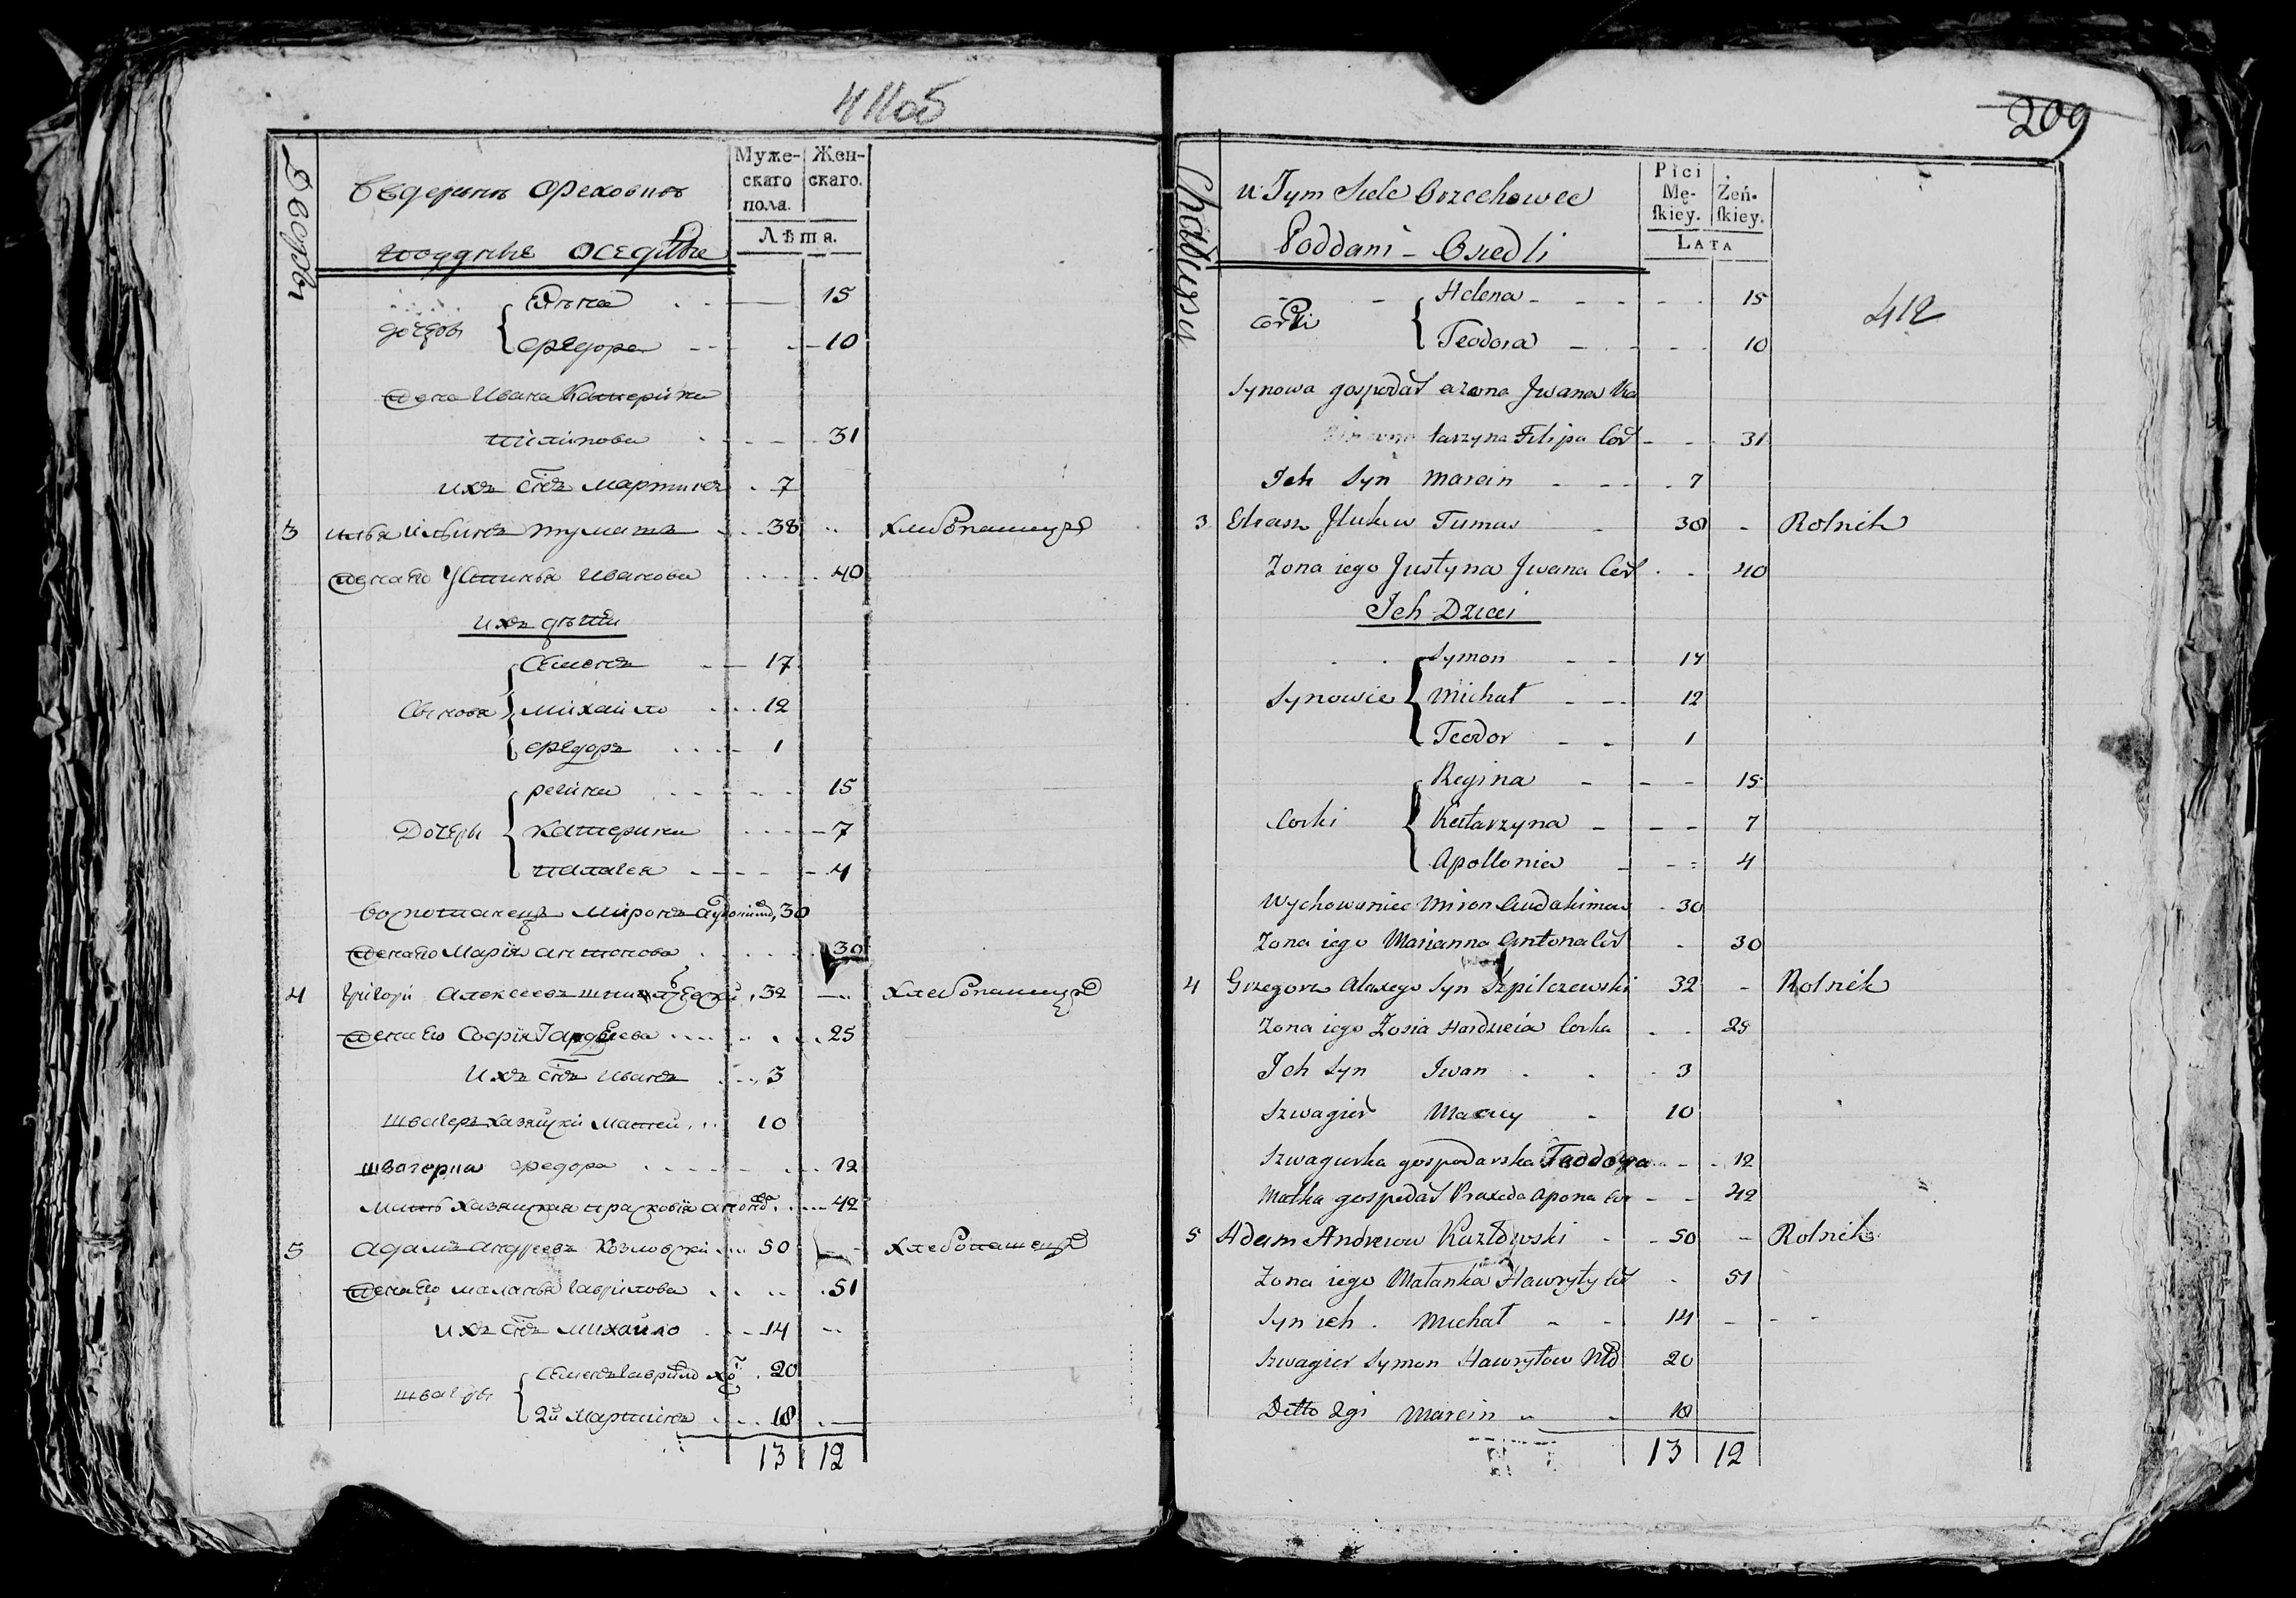 411об
Дворы
В Едерынъ Ореховцъ
Подданые Оседлые
Муже-
скаго
пола.
Жен-
скаго.
Лѣта.
дочеры
Елена 15
Федора 10
жена Ивана Катерина
Пилипова 31
ихъ снъ Мартинъ 7
3 Илья Ильинъ Тумашъ 38 хлебопашецъ
жена его Устинья Иванова 40
ихъ дѣти
Сынова
Семенъ 17
Михайло 12
Федоръ 1
Дочеры
Регина 15
Катерина 7
Палагея 4
воспотанецъ Миронъ 30
жена его Марія Антонова 30
4 Григори Алексеевъ 32 хлебопашецъ
жена его Софія Гардеева 25
ихъ снъ Иванъ 3
швагеръ хазяцкій Матей 10
швагерка Федора 12
мать хазяцкая Прасковія 42
5 Адамъ Андреевъ Козловскій 50 хлебопашецъ
жена его Маланья Гаврилова 51
ихъ снъ Михайло 14
швагры
Семенъ 20
2й Мартинъ 18
13 12
209
Chałupa
u Tym Siele Orzechowce
Poddani - Osiedli
Płci
Mę-
skiey.
Żeń-
skiey.
LATA
412
Corki
Helena 15
Teodora 10
Synowa gospodar a zona Jwana Ka
tarzyna Filipa Cor 31
Jch Syn Marcin 7
3 Eliasz Tumas 38 - Rolnik
Zona iego Justyna Jwana Cor 40
Jch Dzieci
Synowie
Symon 17
Michał 12
Teodor 1
Corki
Regina 15
Katarzyna 7
Apollonia 4
Wychowaniec Miron Audakimow 30
Zona iego Marianna Antona Cor 30
4 Grzegorz Alexego Syn Szpilczewski 32 - Rolnik
Zona iego Zosia Hardzieia Corka 25
Jch Syn Jwan 3
Szwagier Maciey 10
Szwagierka gospodarska Teodora 12
Matka gospodar Praxeda Cor 42
5 Adam Andreiow Kozłowski 50 - Rolnik
Zona iego Małanka Hawryły Cor 51
Syn ich Michał 14
Szwagier Symon Hawryłow 20
Detto 2gi Marcin 18
13 12